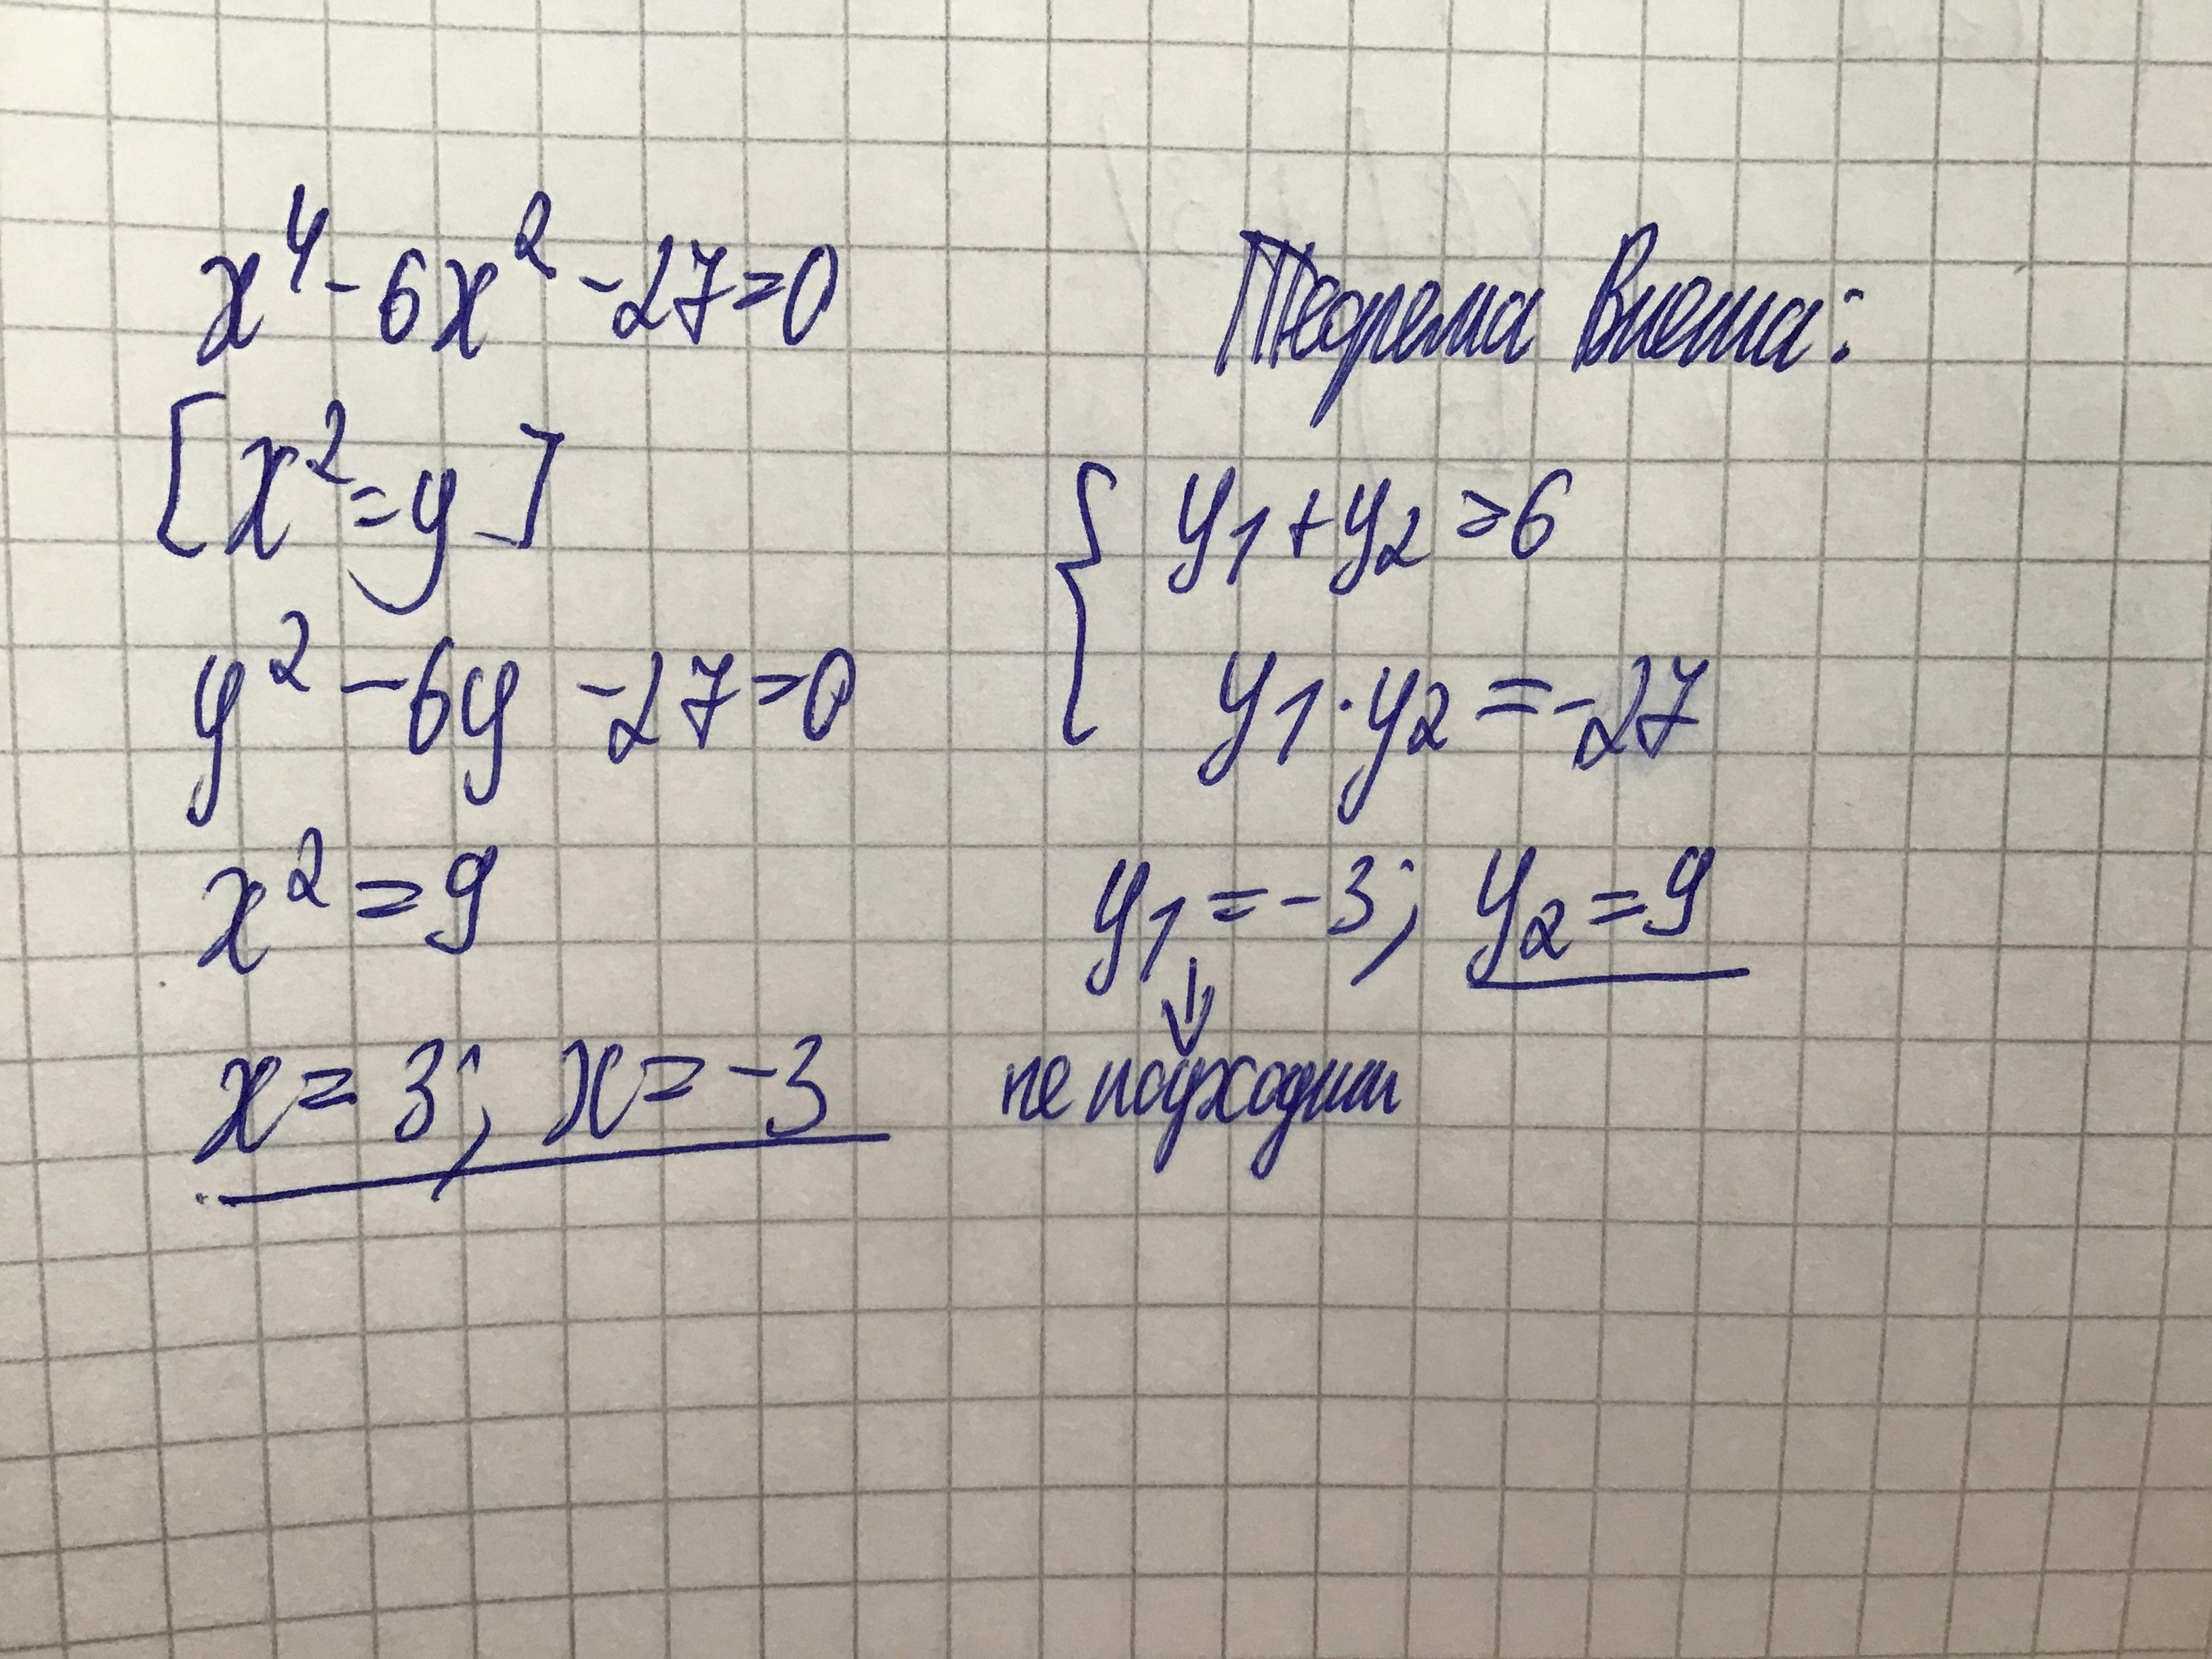 x⁴-6x²-27=0
[x²=y]
y²-6y-27=0
x²=9
x=3; x=-3
Теорема Виета:
{ y₁+y₂=6
y₁·y₂=-27
y₁=-3; y₂=9
↓
не подходит